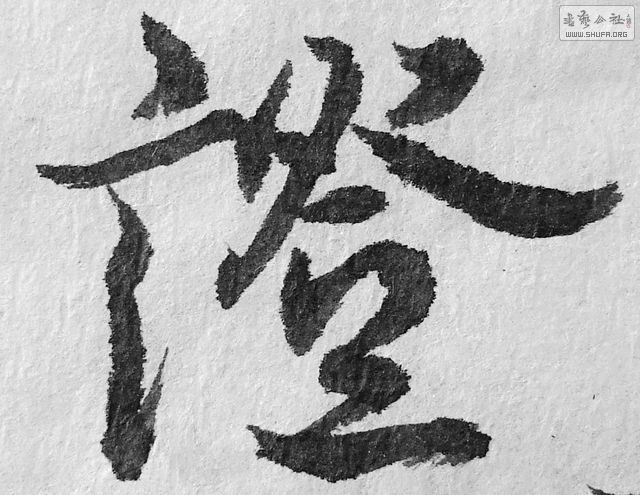 證
書藝公社
WWW.SHUFA.ORG